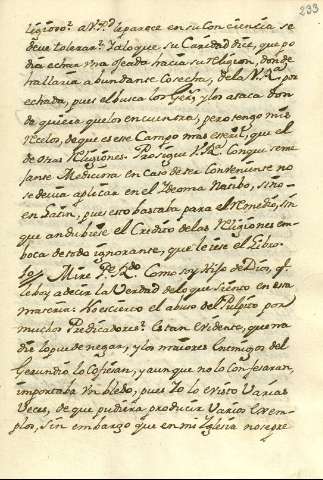 233
ligioso. a V. P. le parece en su Conciencia se
deve tolerar? Ya lo que su Caridad dice, que po
dia echar una Ojeada hacia su religion, donde
hallaria abundante Cosecha, de la V. Rª. por
echada, pues el busca los Ger.s y los ataca don
de quiera que los encuentra, pero tengo mis
recelos, de que es este Campo mas esteril, que el
de otras Religiones. Prosigue V. Rª. Con que seme
jante Medicina en Caso de ser Conveniente no
se devia aplicar en el Ydeoma Natibo, sino
en Latin, pues esto bastaba para el remedio, sin
que andubiese el Credito de las Religiones en
boca de todo ignorante, que leiese el Libro.
Mire P. Rdo. Como soy Hijo de Dios, q.
le boy a decir la Verdad de lo que siento en esta
materia: No es cierto el abuso del Pulpito por
muchos Predicadores? Es tan evidente, que na
die lo puede negar, y los maiores Enemigos del
Gerundio lo Cofiesan, y aunque no lo Confesaran,
importaba un bledo, pues Yo lo e visto Varias
Veces, de que pudiera producir Varios Exem-
plos, sin embargo que en mi Yglesia no se pre